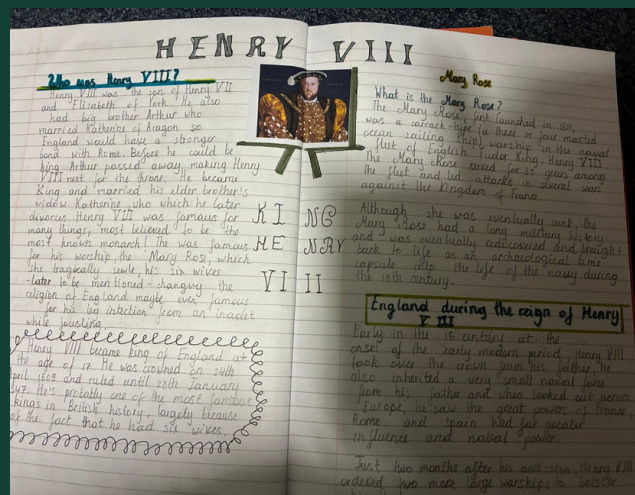 HENRY VIII
Who was Henry VIII?
Henry VIII was the son of Henry VII
and Elizabeth of York. He also
had big brother Arthur who
married Katherine of Aragon so
England would have a stronger
bond with Rome. Before he could be
king Arthur passed away making Henry
VIII next for the throne. He became
King and married his elder brother's
widow Katherine, who which he later
divorces. Henry VIII was famous for
many things, most believed to be the
most known monarch! He was famous
for his worship, the Mary Rose, which
she tragically sunk, his six wives
-later to be mentioned- changing the
religion of England maybe even famous
for his leg infection from an
while jousting.
Henry VIII became king of England at
the age of 17. He was crowned on 24th
April 1509 and ruled until 28th January
1547. He's probably one of the most famous
kings in British history, largely because
of the fact that he had six wives.
KI NG
HE NRY
VI II
Mary Rose
What is the Mary Rose?
The Mary Rose, first launched in 1511,
was a carrack-type (a three or four masted
ocean sailing ship) warship in the naval
fleet of English Tudor King, Henry VIII.
The Mary Rose served for 33 years among
the fleet and led attacks in several wars
against the Kingdom of France.
Although she was eventually sunk, the
Mary Rose had a long military history
and was eventually rediscovered and brought
back to life as an archaeological time
capsule into the life of the navy during
the 16th century.
England during the reign of Henry
VIII
Early in the century at the
onset of the early modern period, Henry VIII
took over the crown from his father, he
also inherited a very small naval force
from his father and when looked out across
Europe, he saw the great powers of France,
Rome and Spain had far greater
influence and naval power.
Just two months after his accession, Henry VIII
ordered two more large warships to bolster